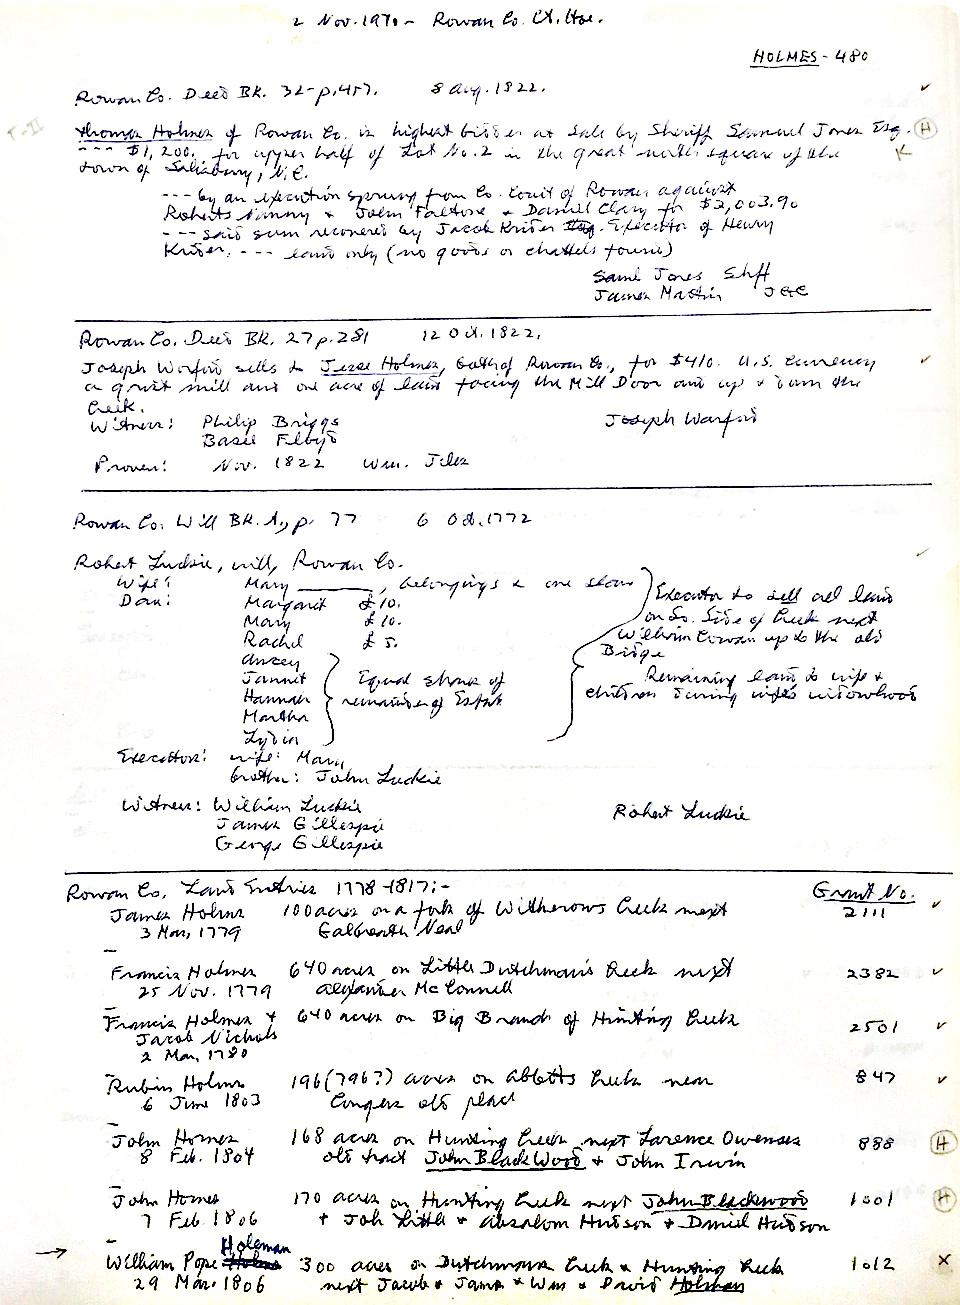 2 Nov. 1970 - Rowan Co. Ct. Hse.
HOLMES - 480
Rowan Co. Deed BK. 32 - p. 457. 8 Aug. 1822.
Thomas Holmes of Rowan Co. is highest bidder at sale by Sheriff Samuel Jones Esq. H
--- $1,200. for upper half of Lot No. 2 in the great north square of the K
town of Salisbury, N.C.
--- by an execution sprung from Co. Court of Rowan against
Roberts Nanny & John Faltose & Daniel Clary for $2,003.90
--- said sum recovered by Jacob Krider Executor of Henry
Krider. --- land only (no goods or chattels found)
Saml Jones Shff
James Martin
Rowan Co. Deed BK. 27 p. 281 12 Oct. 1822.
Joseph Warford sells to Jesse Holmes, both of Rowan Co., for $410. U.S. Currency
a grist mill and one acre of land facing the Mill Door and up & down the
Creek.
Witness: Philip Briggs Joseph Warford
Basil
Proven: Nov. 1822 Wm. Giles
Rowan Co. Will BK. A, p. 77 6 Oct. 1772
Robert Luckie, will, Rowan Co.
Wife: Mary ______, belongings & one
Dau: Margaret £10. Executor to sell all land
Mary £10. on So. Side of Creek next
Rachel £5. William Cowan up to the old
Bridge
Jannet Equal share of Remaining land to wife &
Hannah remainder of Estate children during wife's widowhood
Martha
Lydia
Executors: wife: Mary
brother: John Luckie
Witness: William Luckie Robert Luckie
James Gillespie
George Gillespie
Rowan Co. Land Entries 1778-1817:- Grant No.
James Holms 100 acres on a fork of Witherows Creek next 2111
3 Mar, 1779 Galbreath Neal
Francis Holmes 640 acres on Little Dutchman's Creek next 2382
25 Nov. 1779 Alexander McConnell
Francis Holmes & 640 acres on Big Branch of Hunting Creek 2501
Jacob Nichols
2 Mar, 1780
Rubin Holms 196 (796?) acres on Abbotts Creek near 847
6 June 1803 Congers old place
John Homes 168 acres on Hunting Creek next Larence Owenses 888 H
8 Feb. 1804 old tract John BlackWood & John Irwin
John Homes 170 acres on Hunting Creek next John Blackwood 1001 H
7 Feb 1806 & Joh Little & Absalom Hudson & Daniel Hudson
Holeman
William Pope Holms 300 acres on Dutchmans Creek & Hunting Creek 1012 X
29 Mar. 1806 next Jacob & James & Wm & David Holman